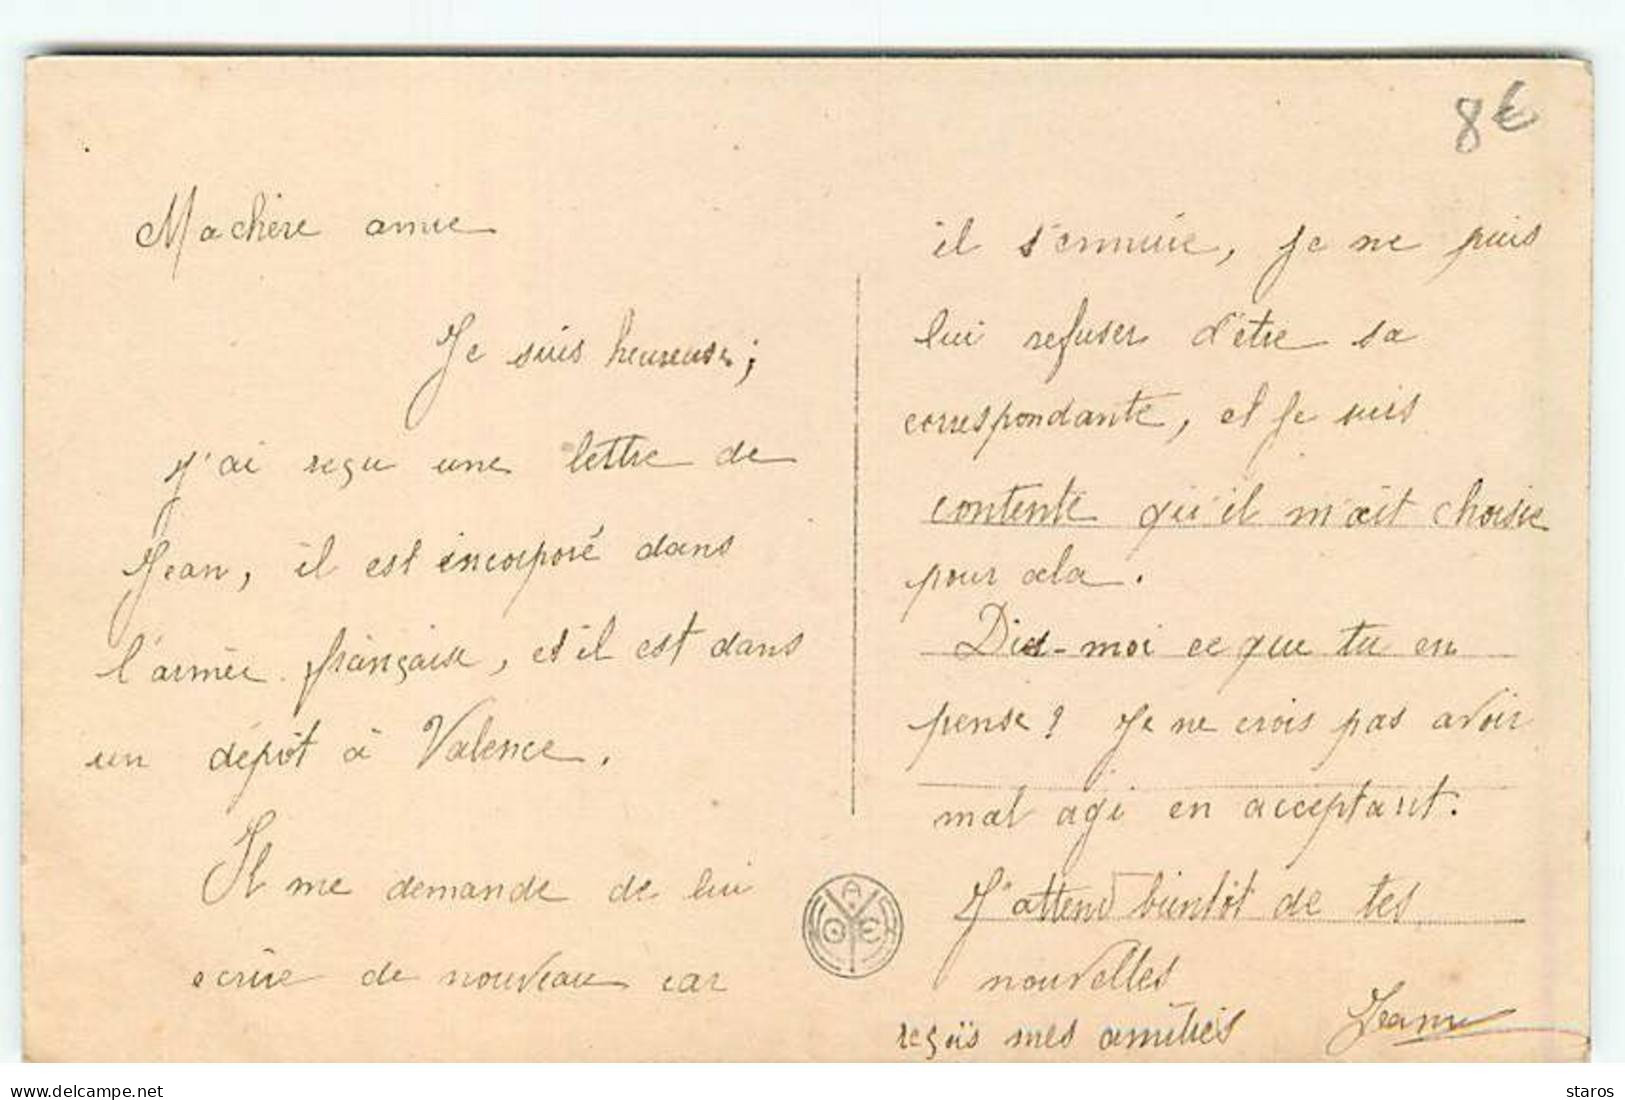 8€
Ma chère amie
Je suis heureuse ;
j'ai reçu une lettre de
Jean, il est incorporé dans
l'armée française, et il est dans
un dépôt à Valence.
Il me demande de lui
écrire de nouveau car
il s'ennuie, je ne puis
lui refuser d'être sa
correspondante, et je suis
contente qu'il m'ait choisie
pour cela.
Dis-moi ce que tu en
pense ? Je ne crois pas avoir
mal agi en acceptant.
J'attend bientôt de tes
nouvelles
reçois mes amitiés Jeanne
www.delcampe.net
staros